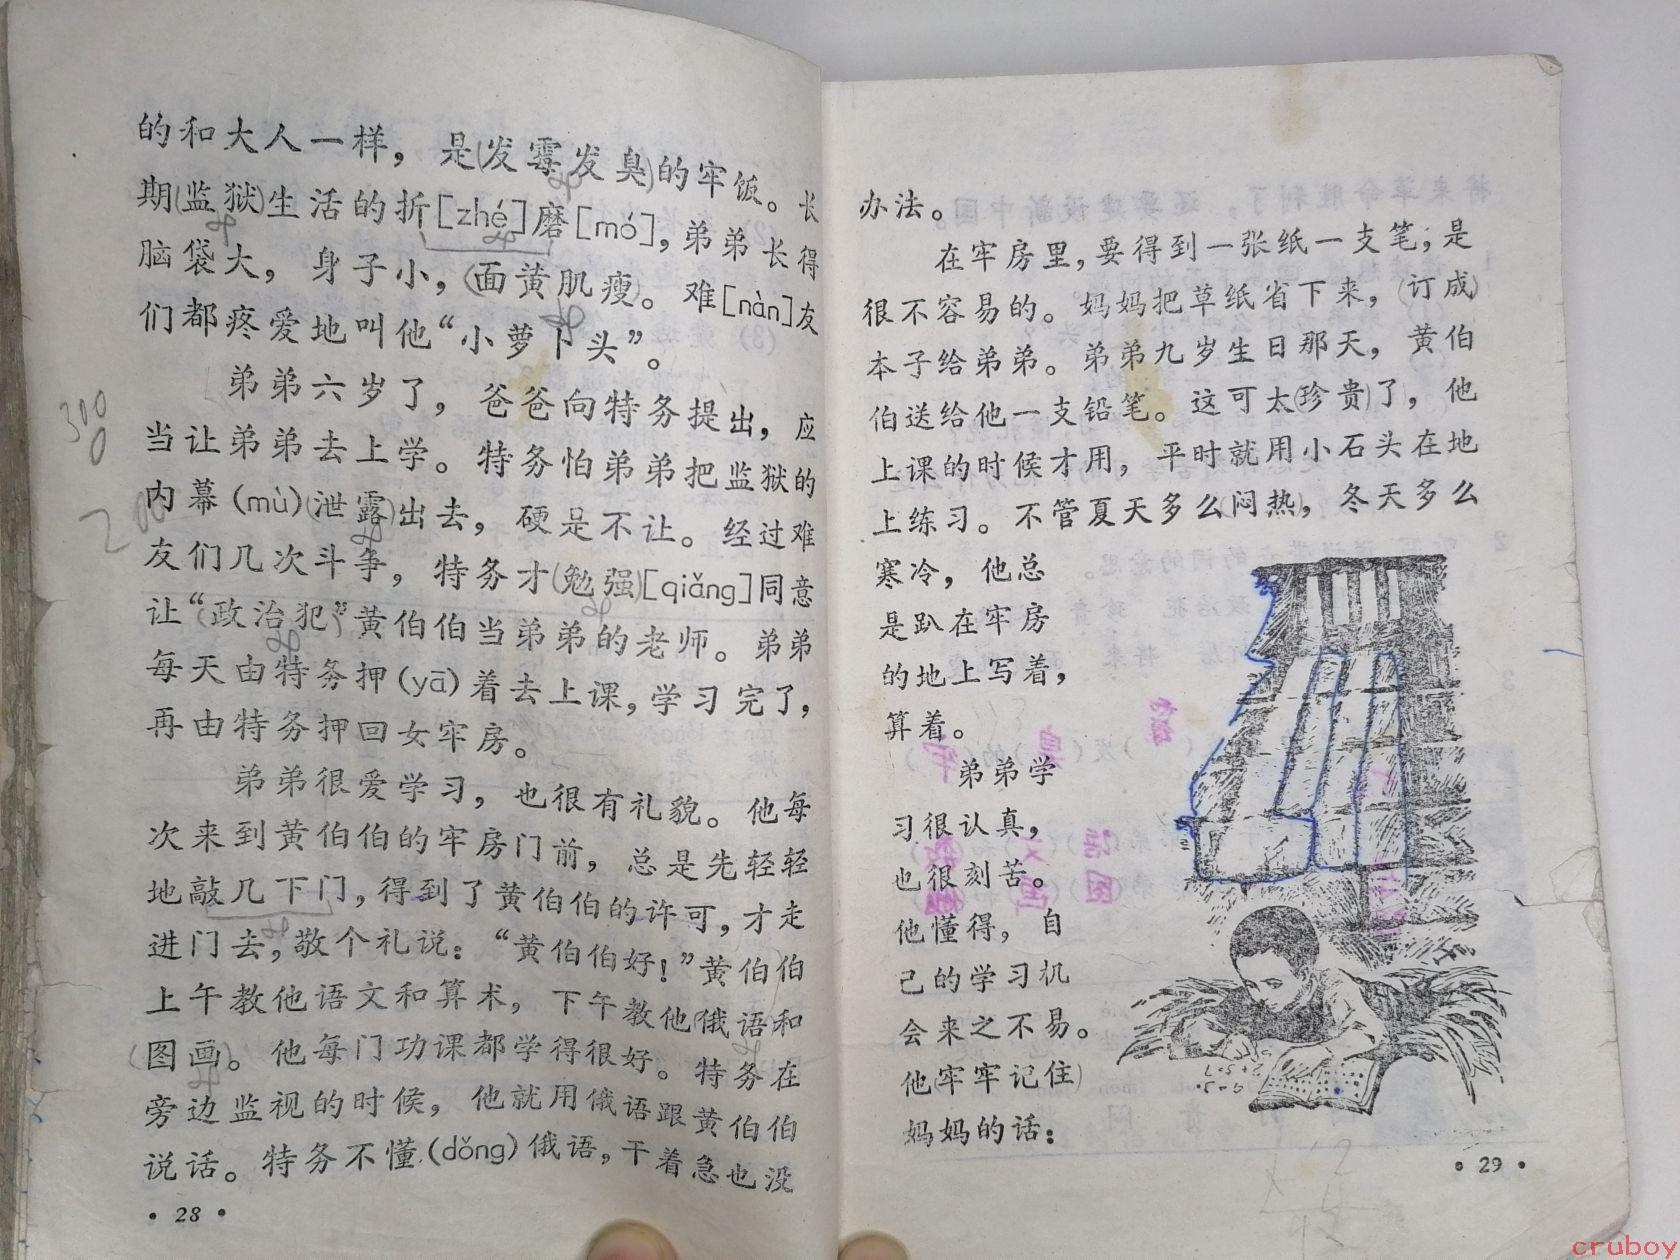 的和大人一样，是发霉发臭的牢饭。长
期监狱生活的折[zhé]磨[mó]，弟弟长得
脑袋大，身子小，面黄肌瘦。难[nàn]友
们都疼爱地叫他“小萝卜头”。
弟弟六岁了，爸爸向特务提出，应
当让弟弟去上学。特务怕弟弟把监狱的
内幕(mù)泄露出去，硬是不让。经过难
友们几次斗争，特务才勉强[qiǎng]同意
让“政治犯”黄伯伯当弟弟的老师。弟弟
每天由特务押(yā)着去上课，学习完了，
再由特务押回女牢房。
弟弟很爱学习，也很有礼貌。他每
次来到黄伯伯的牢房门前，总是先轻轻
地敲几下门，得到了黄伯伯的许可，才走
进门去，敬个礼说：“黄伯伯好！”黄伯伯
上午教他语文和算术，下午教他俄语和
图画。他每门功课都学得很好。特务在
旁边监视的时候，他就用俄语跟黄伯伯
说话。特务不懂(dǒng)俄语，干着急也没
• 28 •
300
0
200
办法。
在牢房里，要得到一张纸一支笔，是
很不容易的。妈妈把草纸省下来，订成
本子给弟弟。弟弟九岁生日那天，黄伯
伯送给他一支铅笔。这可太珍贵了，他
上课的时候才用，平时就用小石头在地
上练习。不管夏天多么闷热，冬天多么
寒冷，他总
是趴在牢房
的地上写着，
算着。
弟弟学
习很认真，
也很刻苦。
他懂得，自
己的学习机
会来之不易。
他牢牢记住
妈妈的话：
• 29 •
cruboy